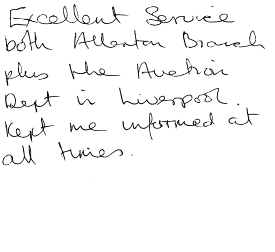 Excellent Service
both Allerton Branch
plus the Auction
Dept in Liverpool.
Kept me informed at
all times.